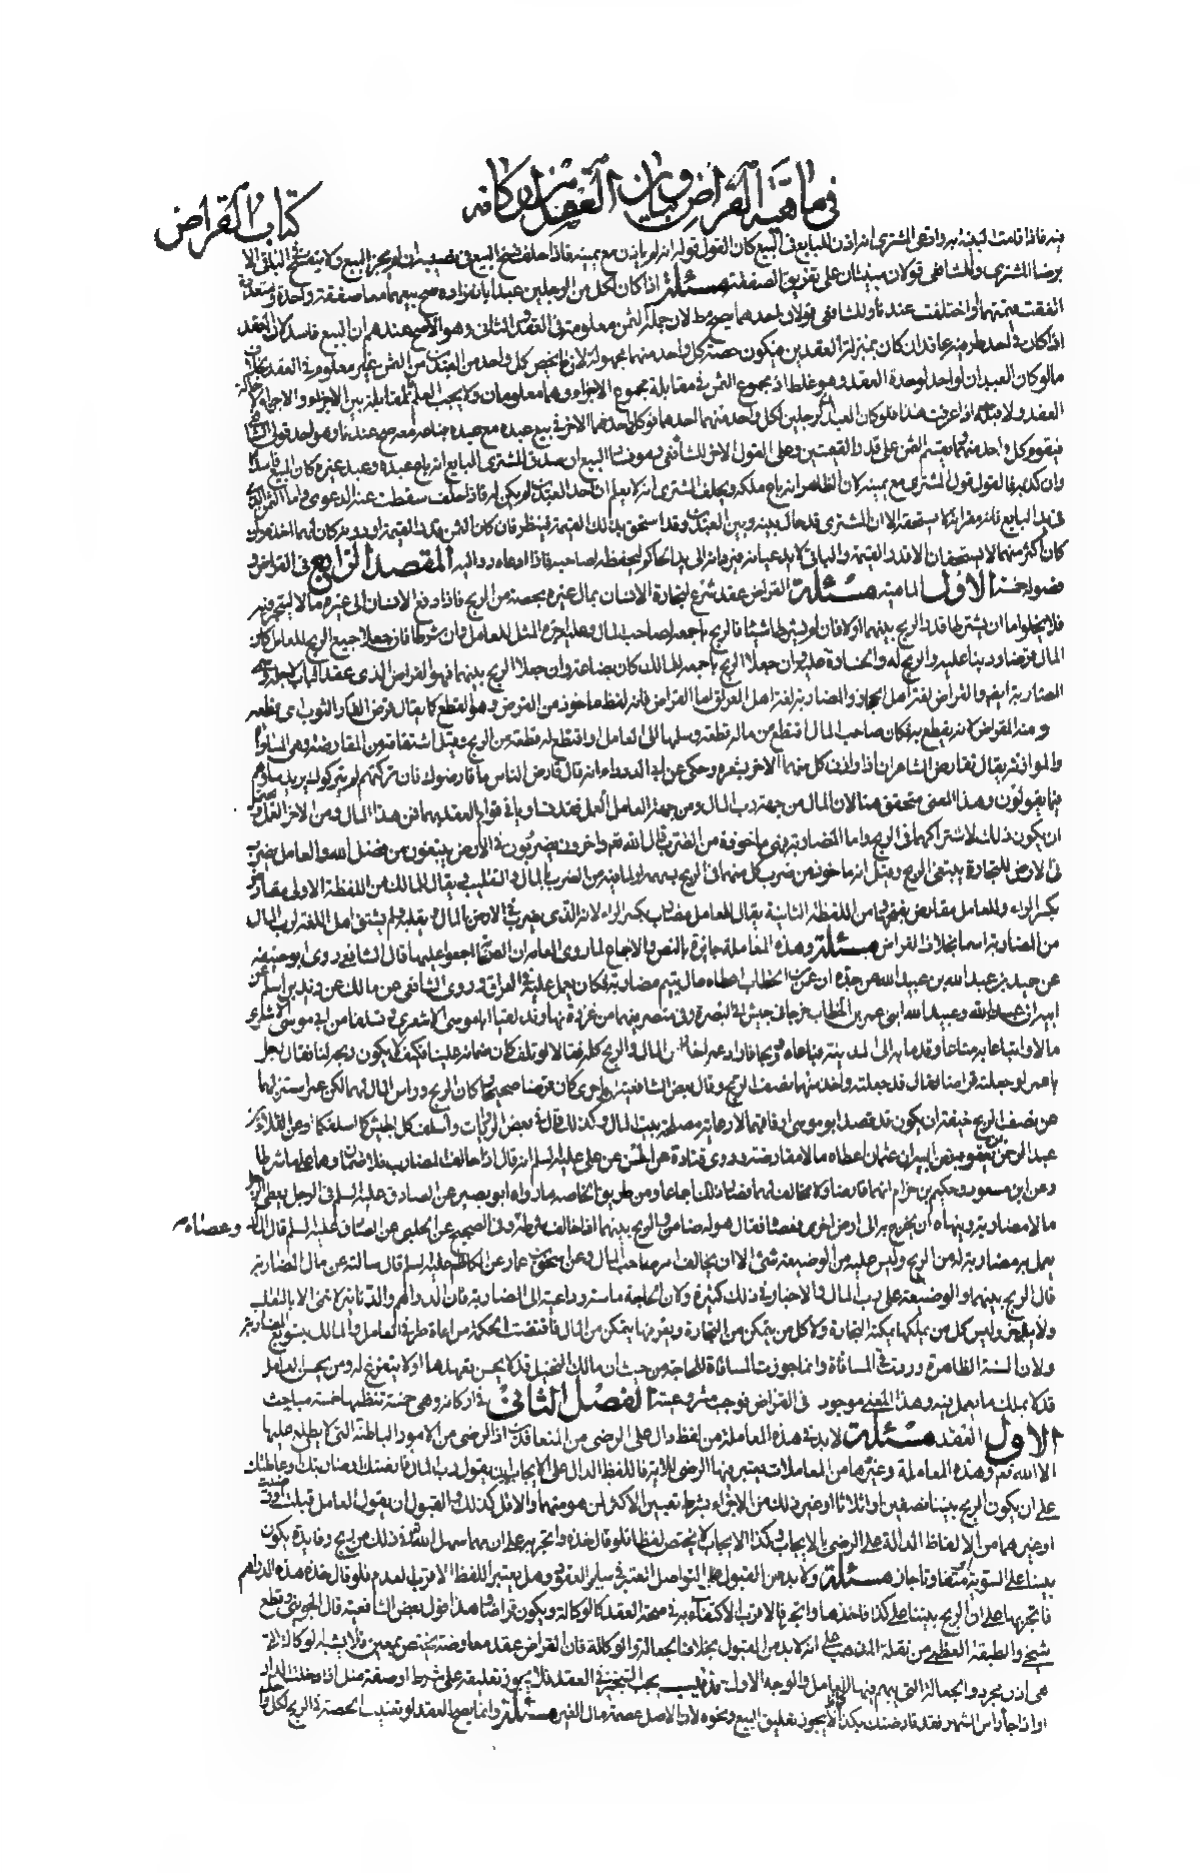 في ماهية القراض وبيان العقد من اركانه
كتاب القراض
فيه فاذا قامت البينة به وادعى المشترى انه اذن للبايع فى البيع كان القول قوله انه لم ياذن مع يمينه فاذا حلف فسخ البيع فى نصيبه ان لم يجز البيع ولا ينفسخ فى الباقى الا
برضا المشترى وللشافعى قولان مبنيان على تفريق الصفقة مسئلة اذا كان لكل من الرجلين عبد بانفراده صح بيعهما معا صفقة واحدة
اتفقت قيمتهما او اختلفت عندنا وللشافعى قولان احدهما صح لان جملة الثمن معلومة فى العقد والثانى وهو الاصح عندهم ان البيع فاسد لان العقد
اذا كان فى احد طرفيه عاقدان كان بمنزلة العقدين فيكون حصة كل واحد منهما مجهولة لان ما يخص كل واحد من العبدين من الثمن غير معلوم فى العقد بخلاف
ما لو كان العبدان لواحد لوحدة العقد وهو غلط اذ مجموع الثمن فى مقابلة مجموع الاجزاء وهما معلومان ولا يجب العلم بمقابلة الاجزاء
العقد ولا قبله اذا عرفت هذا فلو كان العبدان لرجلين لكل واحد منهما احدهما فوكل احدهما الاخر فى بيع عبده مع عبده صح عندنا وهو احد قولى
فيقوم كل واحد منهما ويقسم الثمن على قدر القيمتين وعلى القول الاخر للشافعى وهو فساد البيع ان صدق المشترى البايع انه باع عبده وعبد غيره كان البيع فاسدا
وان كذبه فالقول قول المشترى مع يمينه لان الظاهر انه باع ملكه ويحلف المشترى انه لا يعلم ان احد العبدين لم يكن له فاذا حلف سقطت عنه الدعوى واما الثمن
فى يد البايع فانه مقر انه لا يستحقه الا ان المشترى قد حال بينه وبين العبدين وقد استحق بذلك القيمة فينظر فان كان الثمن بقدر القيمة او دونه كان له
كان اكثر منهما لا يستحقان الا قدر القيمة والباقى لا يدعيانه المقصد الرابع فى القراض وفيه
فصول خمسة الاول الماهية مسئلة القراض عقد شرع لتجارة الانسان بمال غيره بحصة من الربح فاذا دفع الانسان الى غيره مالا ليتجر فيه
فلا يخلو اما ان يشترطا قدر الربح بينهما او لا فان لم يشترطا شيئا فالربح باجمعه لصاحب المال وعليه اجرة المثل للعامل وان شرطا فان جعلا جميع الربح للعامل كان
المال قرضا ودينا عليه والربح له والخسارة عليه وان جعلا الربح باجمعه للمالك كان بضاعة وان جعلا الربح بينهما فهو القراض الذى عقد الباب لاجله
المضاربة ايضا والقراض لغة اهل الحجاز والمضاربة لغة اهل العراق اما القراض فانه لفظ ماخوذ من القرض وهو القطع كما يقال قرض الفار الثوب اى قطعه
ومنه المقراض لانه يقطع به فكان صاحب المال اقتطع من ماله قطعة وسلمها الى العامل او اقتطع له قطعة من الربح وقيل اشتقاقه من المقارضة وهى المساواة
والموازنة يقال تقارض الشاعران اذا وازن كل منهما الاخر بشعره وحكى عن ابى الدرداء انه قال قارض الناس ما قارضوك فان تركتهم لم يتركوك يريد ساوهم
فيما يقولون وهذا المعنى متحقق هنا لان المال من جهة رب المال ومن جهة العامل العمل فقد تساويا فى قوام العقد بهما فمن هذا المال ومن الاخر العمل ويحتمل
ان يكون ذلك لاشتراكهما فى الربح واما المضاربة فهى ماخوذة من الضرب قال الله تعالى واخرون يضربون فى الارض يبتغون من فضل الله والعامل يضرب
فى الارض للتجارة يبتغى الربح وقيل انه ماخوذ من ضرب كل منهما فى الربح بسهمه او لما فيه من الضرب بالمال والتقليب ويقال للمالك من اللفظة الاولى مقارض
بكسر الراء وللعامل مقارض بفتحها ومن اللفظة الثانية يقال للعامل مضارب بكسر الراء لانه الذى يضرب فى الارض بالمال ويقلبه ولم يشتق اهل اللغة لرب المال
من المضاربة اسما بخلاف القراض مسئلة وهذه المعاملة جايزة بالنص والاجماع لما روى العامة ان الصحابة اجمعوا عليها قال الشافعى روى ابو حنيفة
عن حميد بن عبد الله بن عبيد الله عن جده ان عمر بن الخطاب اعطاه مال يتيم مضاربة فكان يعمل عليه فى العراق وروى الشافعى عن مالك عن زيد بن اسلم عن
ابيه ان عبد الله وعبيد الله ابنى عمر بن الخطاب خرجا فى جيش الى البصرة وفى منصرفهما من غزوة نهاوند لقيا ابا موسى الاشعرى فتسلفا من ابى موسى الاشعرى
مالا وابتاعا به متاعا وقدما به الى المدينة فباعاه وربحا فاراد عمر اخذ راس المال والربح كله فقالا لو تلف كان ضمانه علينا فكيف لا يكون ربحه لنا فقال رجل
يا عمر لو جعلته قراضا فقال قد جعلته واخذ منهما نصف الربح وقال بعض الشافعية ما جرى كان قرضا صحيحا وكان الربح وراس المال لهما لكن عمر استنزلهما
عن نصف الربح خيفة ان يكون قد قصد ابو موسى ارفاقهما لا رعاية مصلحة بيت المال وكذلك قال فى بعض الروايات وأسلف كل الجيش كما اسلفكما وعن العلاء بن
عبد الرحمن بن يعقوب عن ابيه ان عثمان اعطاه مالا مقارضة وروى قتادة عن الحسن عن على عليه السلم انه قال اذا خالف المضارب فلا ضمان وهما على ما شرطا
وعن ابن مسعود وحكيم بن حزام انهما قارضا ولا مخالف لهما فصار ذلك اجماعا ومن طريق الخاصة ما رواه ابو بصير عن الصادق عليه السلم فى الرجل يعطى الرجل
مالا مضاربة وينهاه ان يخرج به الى ارض اخرى فعصاه فقال هو له ضامن والربح بينهما اذا خالف شرطه وفى الصحيح عن الحلبى عن الصادق عليه السلم قال المال الذى
وعصاه
يعمل به مضاربة له من الربح وليس عليه من الوضيعة شئ الا ان يخالف امر صاحب المال وعن اسحق بن عمار عن الكاظم عليه السلم قال سالته عن مال المضاربة
قال الربح بينهما والوضيعة على رب المال والاخبار فى ذلك كثيرة ولان الحاجة ماسة وداعية الى المضاربة فان الدراهم والدنانير لا تنمى الا بالتقليب
وليس كل من يملكها يمكنه التجارة ولا كل من يتمكن من التجارة ويعرفها يتمكن من المال فاقتضت الحكمة مراعاة طرفى العامل والمالك بتسويغ المضاربة
ولان السنة الظاهرة وردت فى المساقاة وانما جوزت المساقاة للحاجة من حيث ان مالك النخيل قد لا يحسن تعهدها او لا يتفرغ له ومن يحسن العمل
قد لا يملك ما يعمل فيه وهذا المعنى موجود فى القراض فوجب مشروعيته الفصل الثانى فى اركانه وهى خمسة تنظمها خمسة مباحث
الاول العقد مسئلة لا بد فى هذه المعاملة من لفظ دال على الرضى من المتعاقدين اذ الرضى من الامور الباطنة التى لا يطلع عليها
الا الله تعالى وهذه المعاملة وغيرها من المعاملات يعتبر فيها الرضى فاللفظ الدال على الايجاب ان يقول رب المال قارضتك او ضاربتك او عاملتك
على ان يكون الربح بيننا نصفين او اثلاثا او غير ذلك من الاجزاء بشرط تعيين الاكثر لمن هو منهما والاقل كذلك والقبول ان يقول العامل قبلت او رضيت
او غيرهما من الالفاظ الدالة على الرضى بالايجاب وكذا الايجاب لا يختص لفظا فلو قال خذه واتجر به على ان مهما سهل الله تعالى فى ذلك من ربح وفايدة يكون
بيننا على السوية او متفاوتا جاز مسئلة ولا بد من القبول على التواصل المعتبر فى ساير العقود وهل يعتبر اللفظ الاقرب العدم فلو قال خذ هذه الدراهم
فاتجر بها على ان الربح بيننا على كذا فاخذها واتجر فالاقرب الاكتفاء به فى صحة العقد كالوكالة ويكون قراضا وهذا قول بعض الشافعية قال الجوينى وقطع
شيخى والطبقة العظمى من نقلة المذهب على انه لا بد من القبول بخلاف الجعالة والوكالة فان القراض عقد معاوضة يختص بمعين فلا يشبه الوكالة التى
هى اذن مجرد والجعالة التى يبهم فيها العامل والوجه الاول تذنيب يجب التنجيز فى العقد فلا يجوز تعليقه على شرط او صفة مثل اذا دخلت الدار
او اذا جاء راس الشهر فقد قارضتك بكذا كما لا يجوز تعليق البيع ونحوه لان الاصل عصمة مال الغير مسئلة وانما يصح العقد لو تعينت الحصة فى الربح لكل واحد